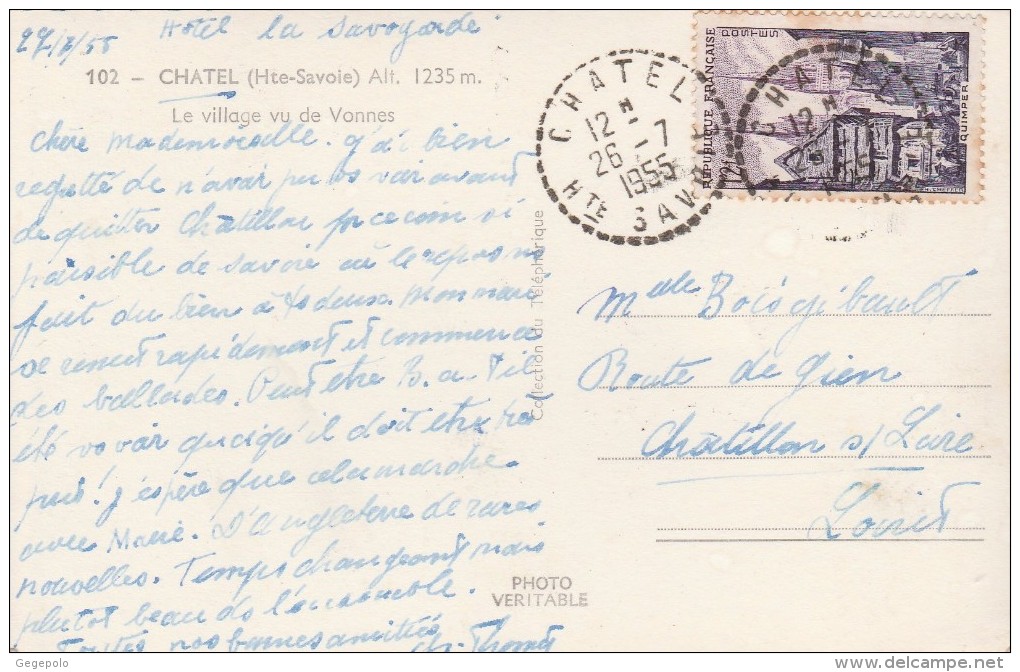 27/7/55 Hotel la Savoyarde
102 – CHATEL (Hte-Savoie) Alt. 1235 m.
Le village vu de Vonnes
Chère Mademoiselle. J'ai bien
regretté de n'avoir pu vs voir avant
de quitter Chatillon pr ce coin si
paisible de Savoie où le repos ns
fait du bien à ts deux. Mon mari
se remet rapidement et commence
des ballades. Peut être B. a-t-il
été vs voir quoiqu'il doit etre
pris! J'espère que cela marche
avec Marie. D'Angleterre de rares
nouvelles. Temps changeant mais
plutot beau ds l'ensemble.
Toutes nos bonnes amitiés
Ch. Thomas
Collection du Téléphérique
PHOTO
VERITABLE
CHATEL
12 H
26 -7
1955
HTE SAV
POSTES
REPUBLIQUE FRANÇAISE
QUIMPER
CHATEL
12 H
Melle Boisgibault
Route de Gien
Châtillon s/ Loire
Loiret
Gegepolo
www.delcampe.net